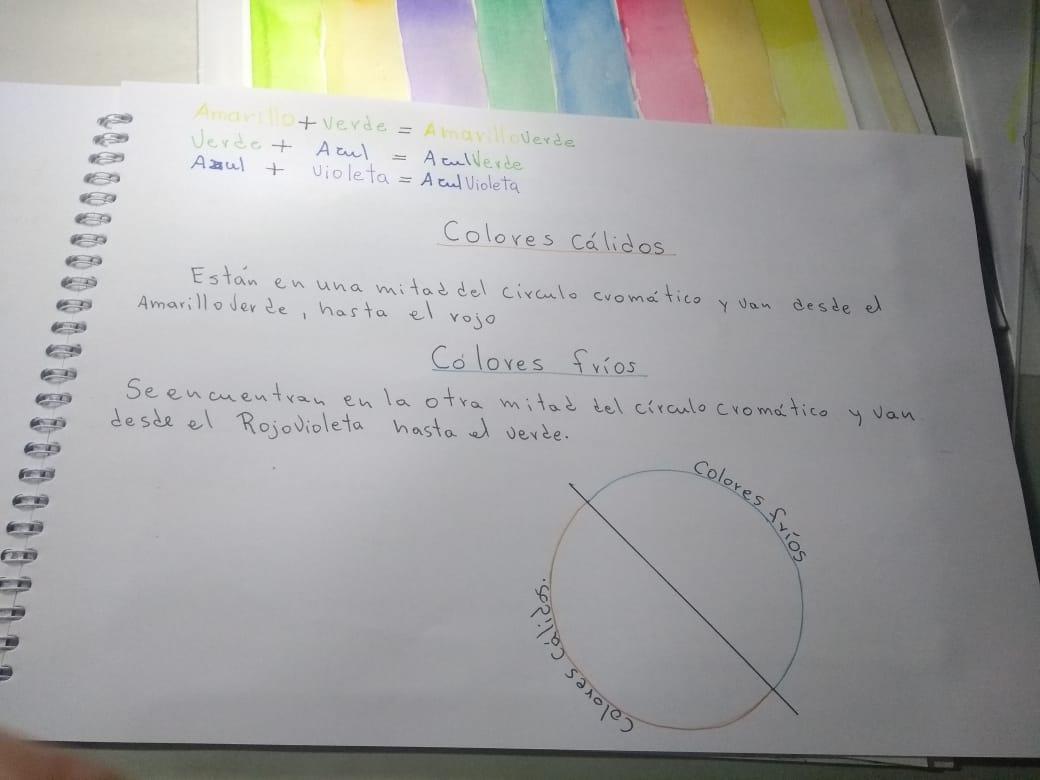 Amarillo + Verde = AmarilloVerde
Verde + Azul = AzulVerde
Azul + Violeta = AzulVioleta
Colores cálidos
Están en una mitad del círculo cromático y van desde el
AmarilloVerde, hasta el rojo
Cólores fríos
Se encuentran en la otra mitad del círculo cromático y van
desde el RojoVioleta hasta el verde.
Colores fríos
Colores cálidos.